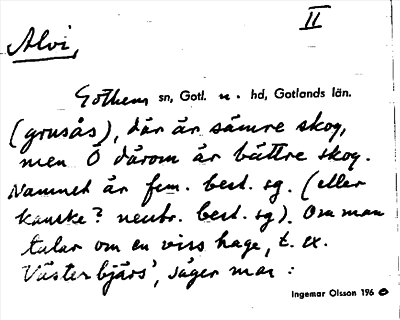 II
Alvi,
Gothem sn, Gotl. n. hd, Gotlands län.
(grusås), där är sämre skog,
men Ö därom är bättre skog.
Namnet är fem. best. sg. (eller
kanske? neutr. best. sg). Om man
talar om en viss hage, t. ex.
Västerbjärs', säger man :
Ingemar Olsson 1960